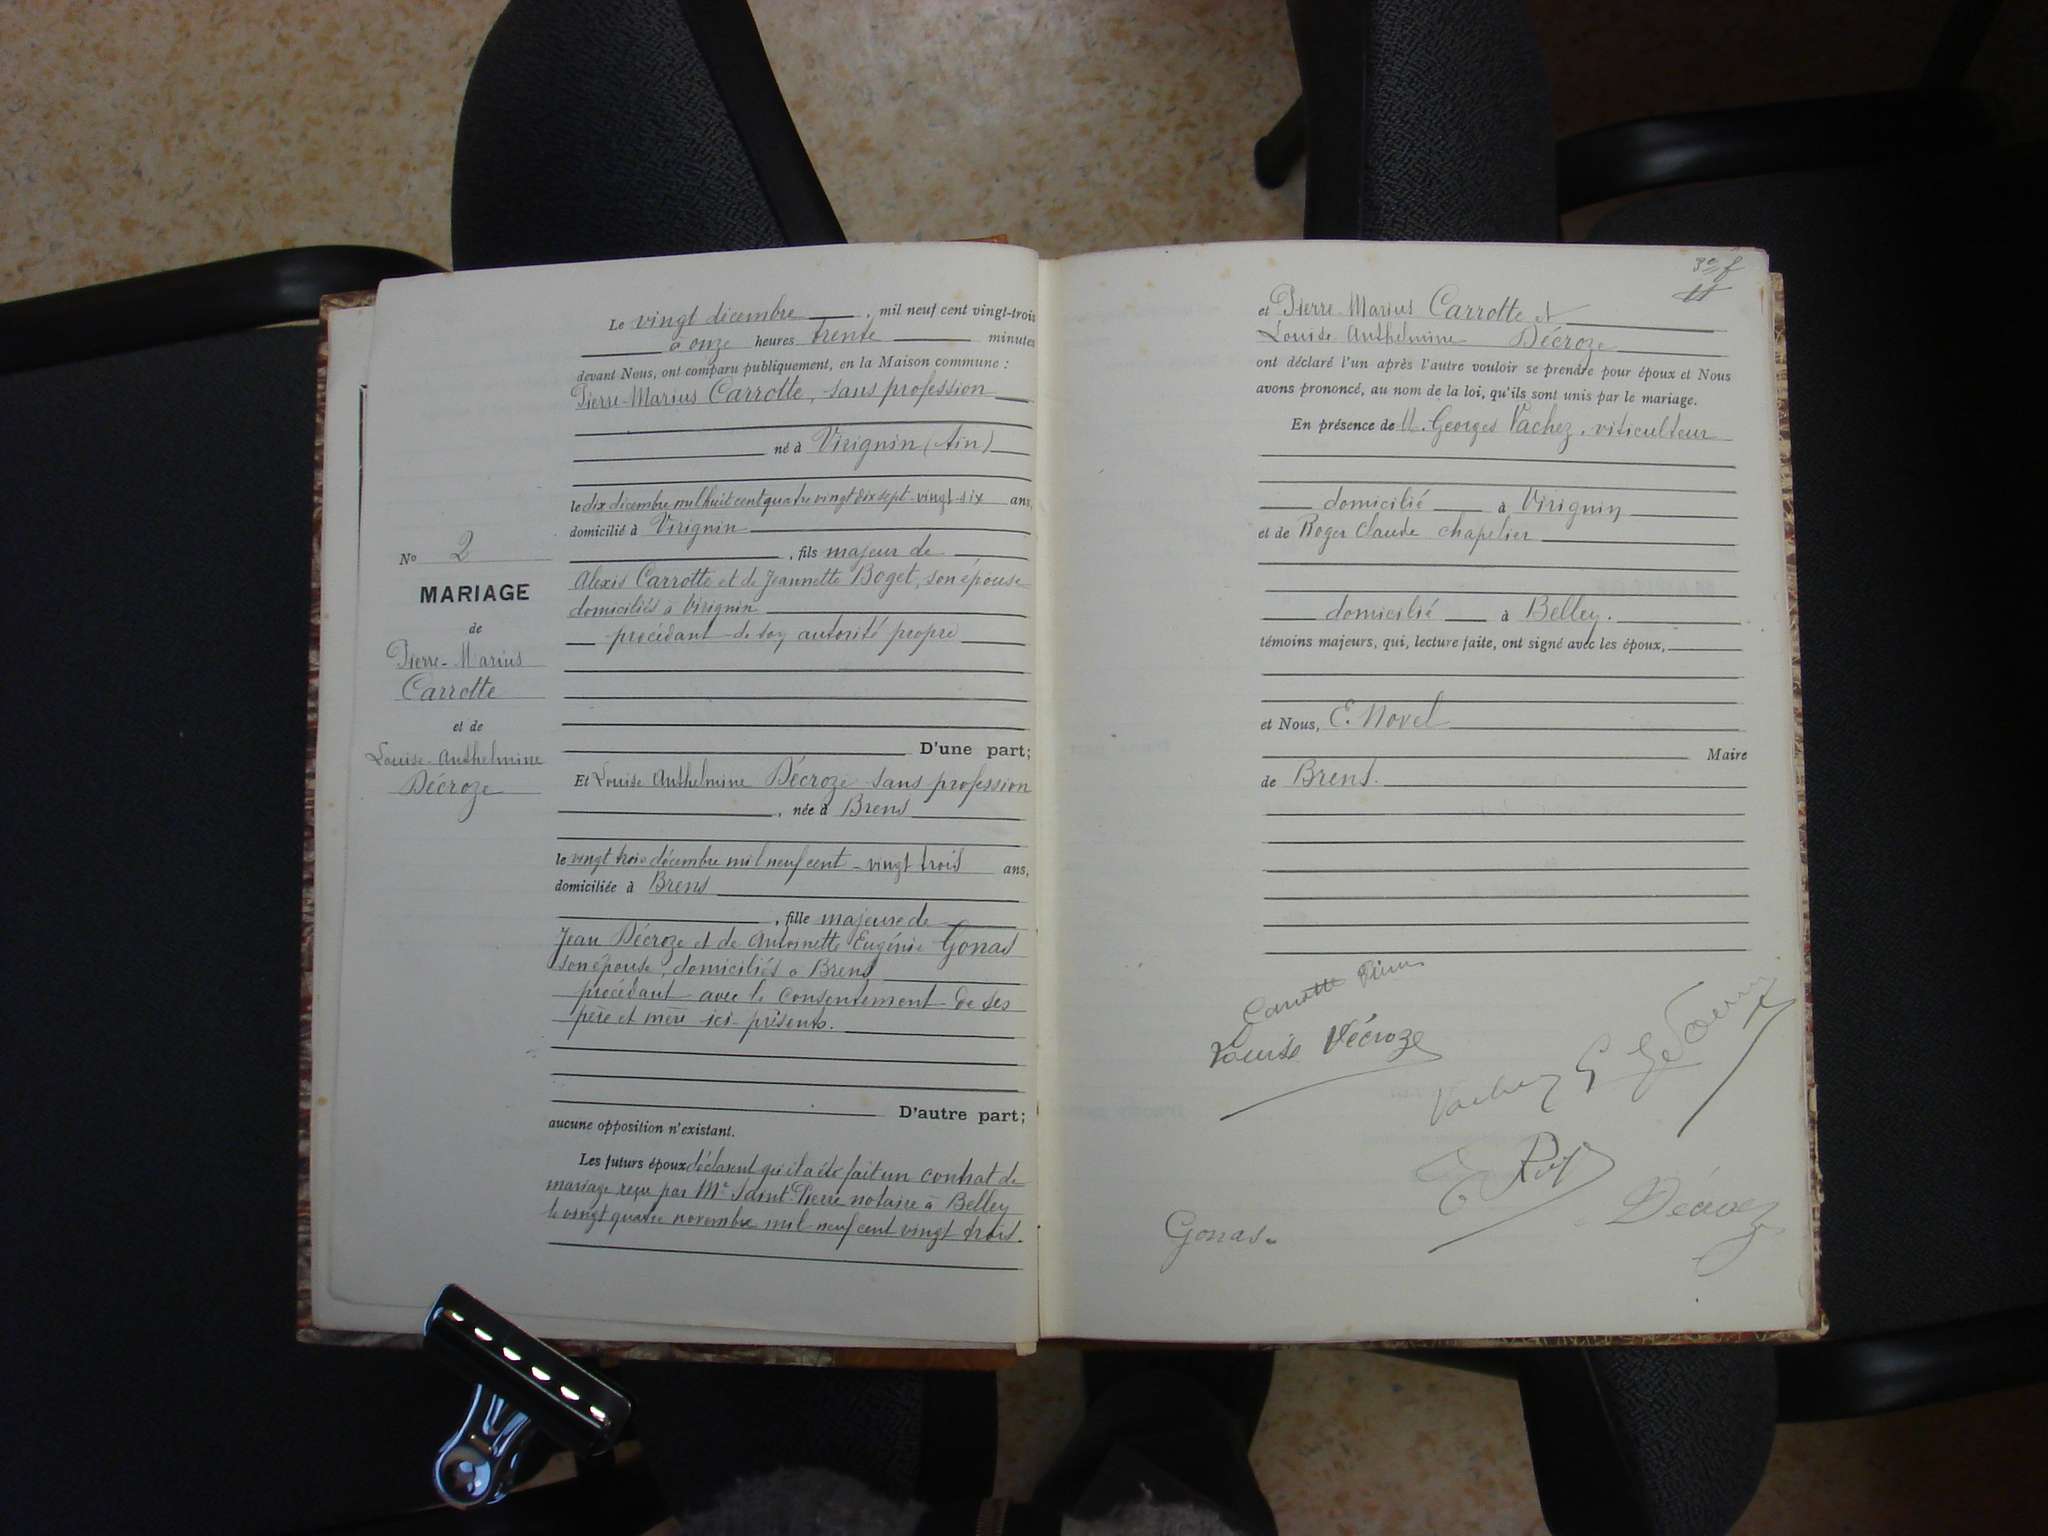 Le vingt décembre, mil neuf cent vingt-trois
à onze heures trente minutes
devant Nous, ont comparu publiquement, en la Maison commune :
Pierre-Marius Carrotte, sans profession
né à Virignin (Ain)
le dix décembre mil huit cent quatre vingt dix sept - vingt-six ans,
domicilié à Virignin
, fils majeur de
Alexis Carrotte et de Jeannette Boget, son épouse
domiciliés à Virignin
procédant de son autorité propre
D'une part;
Et Louise Anthelmine Décroze sans profession
, née à Brens
le vingt trois décembre mil neuf cent - vingt trois ans,
domiciliée à Brens
, fille majeure de
Jean Décroze et de Antoinette Eugénie Gonas
son épouse, domiciliés à Brens
procédant avec le consentement de ses
père et mère ici présents.
D'autre part;
aucune opposition n'existant.
Les futurs époux déclarent qu'il a été fait un contrat de
mariage reçu par Me Saint-Pierre notaire à Belley
le vingt quatre novembre mil neuf cent vingt trois.
No 2
MARIAGE
de
Pierre-Marius
Carrotte
et de
Louise-Anthelmine
Décroze
3e f
et Pierre-Marius Carrotte et
Louise Anthelmine Décroze
ont déclaré l'un après l'autre vouloir se prendre pour époux et Nous
avons prononcé, au nom de la loi, qu'ils sont unis par le mariage.
En présence de M. Georges Vachez, viticulteur
domicilié à Virignin
et de Roger Claude chapelier
domicilié à Belley.
témoins majeurs, qui, lecture faite, ont signé avec les époux,
et Nous, E. Novel
Maire
de Brens.
Carrotte Pierre
Louise Décroze
Vachez G
Gonas
Décroze